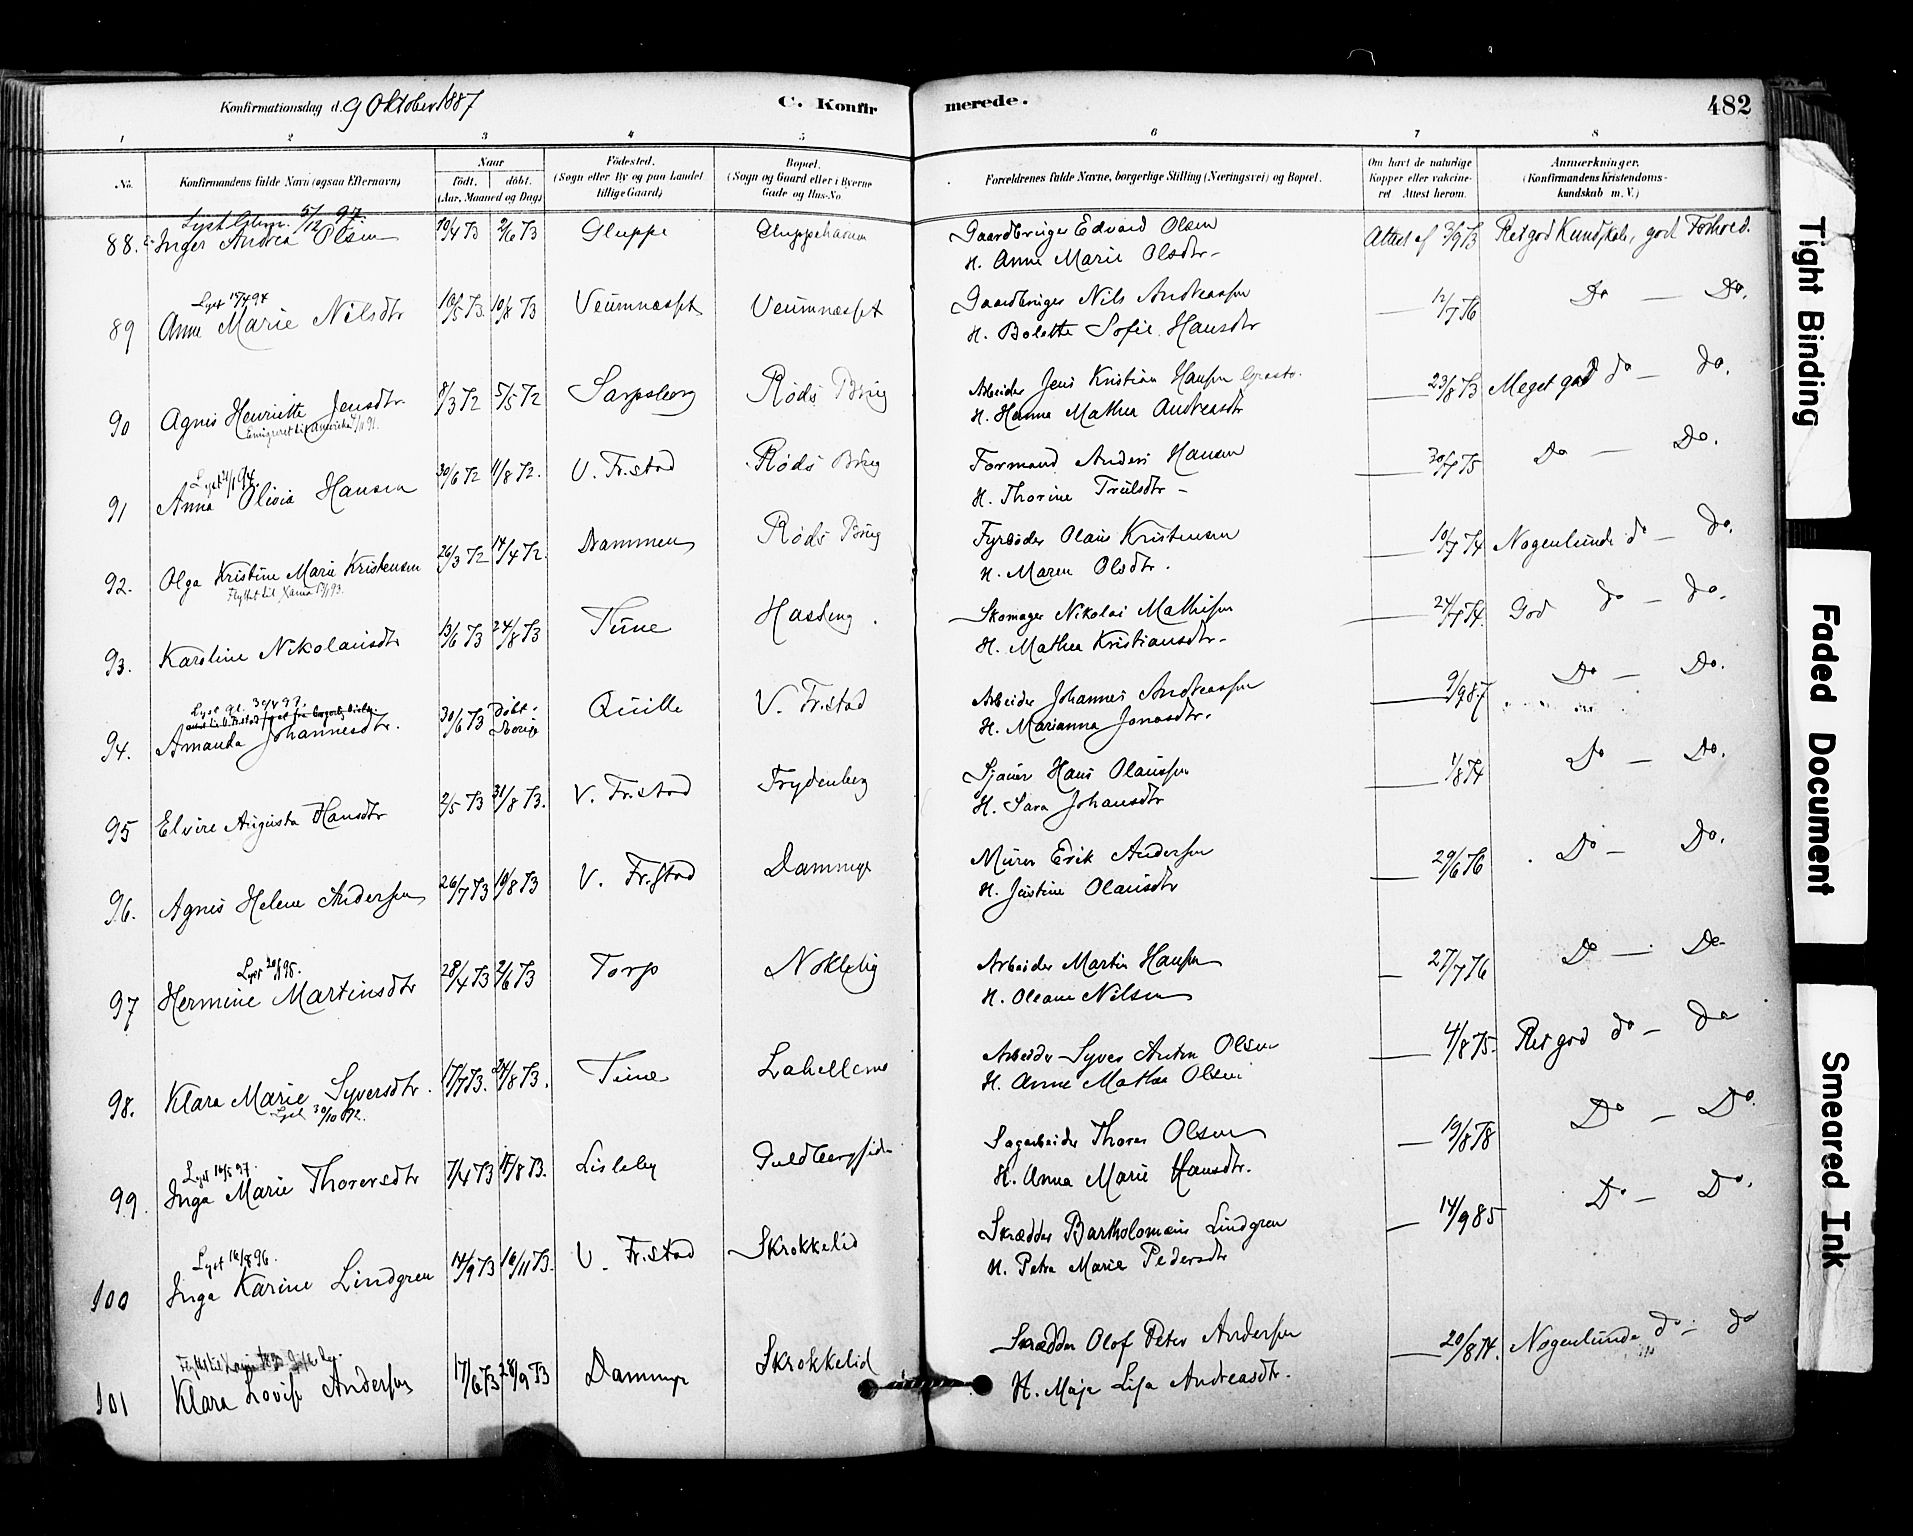 Konfirmationsdag d. 9 Oktober 1887
C. Konfirmerede.
482
1 2 3 4 5 6 7 8
No. Konfirmandens fulde Navn (ogsaa Efternavn) Naar født. døbt. (Aar, Maaned og Dag) Födested. (Sogn eller By og paa Landet tillige Gaard) Bopæl. (Sogn og Gaard eller i Byerne Gade og Hus-No Forældrenes fulde Navne, borgerlige Stilling (Næringsvei) og Bopæl. Om havt de naturlige Kopper eller vaccineret Attest herom. Anmærkninger. (Konfirmandens Kristendomskundskab m. V.)
Lyst Glem. 5/12 97.
88. Inger Andrea Olsen 10/4 73 2/6 73 Gluppe Gluppehavnen Gaardbruger Edvard Olsen Attest af 3/9 73 Ret god Kundskab, god Forhold.
H. Anne Marie Olsdtr
Lyst 15/4 94
89 Anne Marie Nilsdtr 10/5 73 10/8 73 Veumnæsset Veumnæsset Gaardbruger Nils Andreassen 12/7 76 Do — Do.
H. Bolette Sofie Hansdtr
90 Agnes Henriette Jensdtr 8/3 72 5/5 72 Sarpsborg Røds Brug Arbeider Jens Kristian Hansen 23/8 73 Meget god do — do.
Emigreret til Amerika 91. H. Hanna Mathea Andreasdtr
91 Anna Olivia Hansen 30/6 72 11/8 72. V. Fr.stad Røds Brug Formand Anders Hansen 30/7 75 Do — Do.
H. Thorine Trulsdtr
92. Olga Kristine Marie Kristensen 26/3 72 14/4 72. Dammen Røds Brug Fyrbøder Olaus Kristensen 10/7 74 Nogenlunde do — do.
H. Maren Olsdtr.
93. Karoline Nikolaisdtr 13/6 73 24/8 73 Tune Hasleng. Skomager Nikolai Mathisen 24/7 74. God do — do.
H. Mathea Kristiansdtr
94. Amanda Johannesdtr. 30/6 73 Døbt. Sverige Quille V. Fr.stad Arbeider Johannes Andreassen 9/9 87 Do — Do.
H. Marianna Jonasdtr.
95 Elvire Augusta Hansdtr 2/5 73 31/8 73. V. Fr.stad Frydenberg Sjauer Hans Olaussen 1/8 74 Do — Do.
H. Sara Johansdtr
96. Agnes Helene Andersen 26/7 73 10/8 73 V. Fr.stad Dammyr Murer Erik Andersen 29/6 76 Do — Do.
H. Justine Olausdtr
Lyst 20/1 95.
97 Hermine Martinsdtr 28/4 73 2/6 73 Torp Nøkleby Arbeider Martin Hansen 27/7 76 Do — Do
H. Oleane Nilsen
98. Klara Marie Syversdtr. 17/7 73. 24/8 73. Tune Lahellemo Arbeider Syver Anton Olsen 4/8 75. Ret god do — do
Lyst 30/10 92. H. Anne Mathea Olsen
Lyst 16/5 97.
99. Inga Marie Thorersdtr 7/4 73 17/8 73. Lisleby Guldbergsiden Sagarbeider Thorer Olsen 19/8 78 Do — Do
H. Anna Marie Hansdtr.
Lyst 16/8 96.
100 Inga Karine Lindgren 14/9 73 16/11 73. V. Fr.stad Skrokkelid Skrædder Bartholomæus Lindgren 14/9 85 Do — Do.
H. Petra Marie Pedersdtr
101 Klara Lovise Andersen 17/6 73 28/9 73 Dammyr Skrokkelid Skrædder Olof Peter Andersen 20/8 74. Nogenlunde do — do
H. Maja Lisa Andreasdtr.
Tight Binding
Faded Document
Smeared Ink